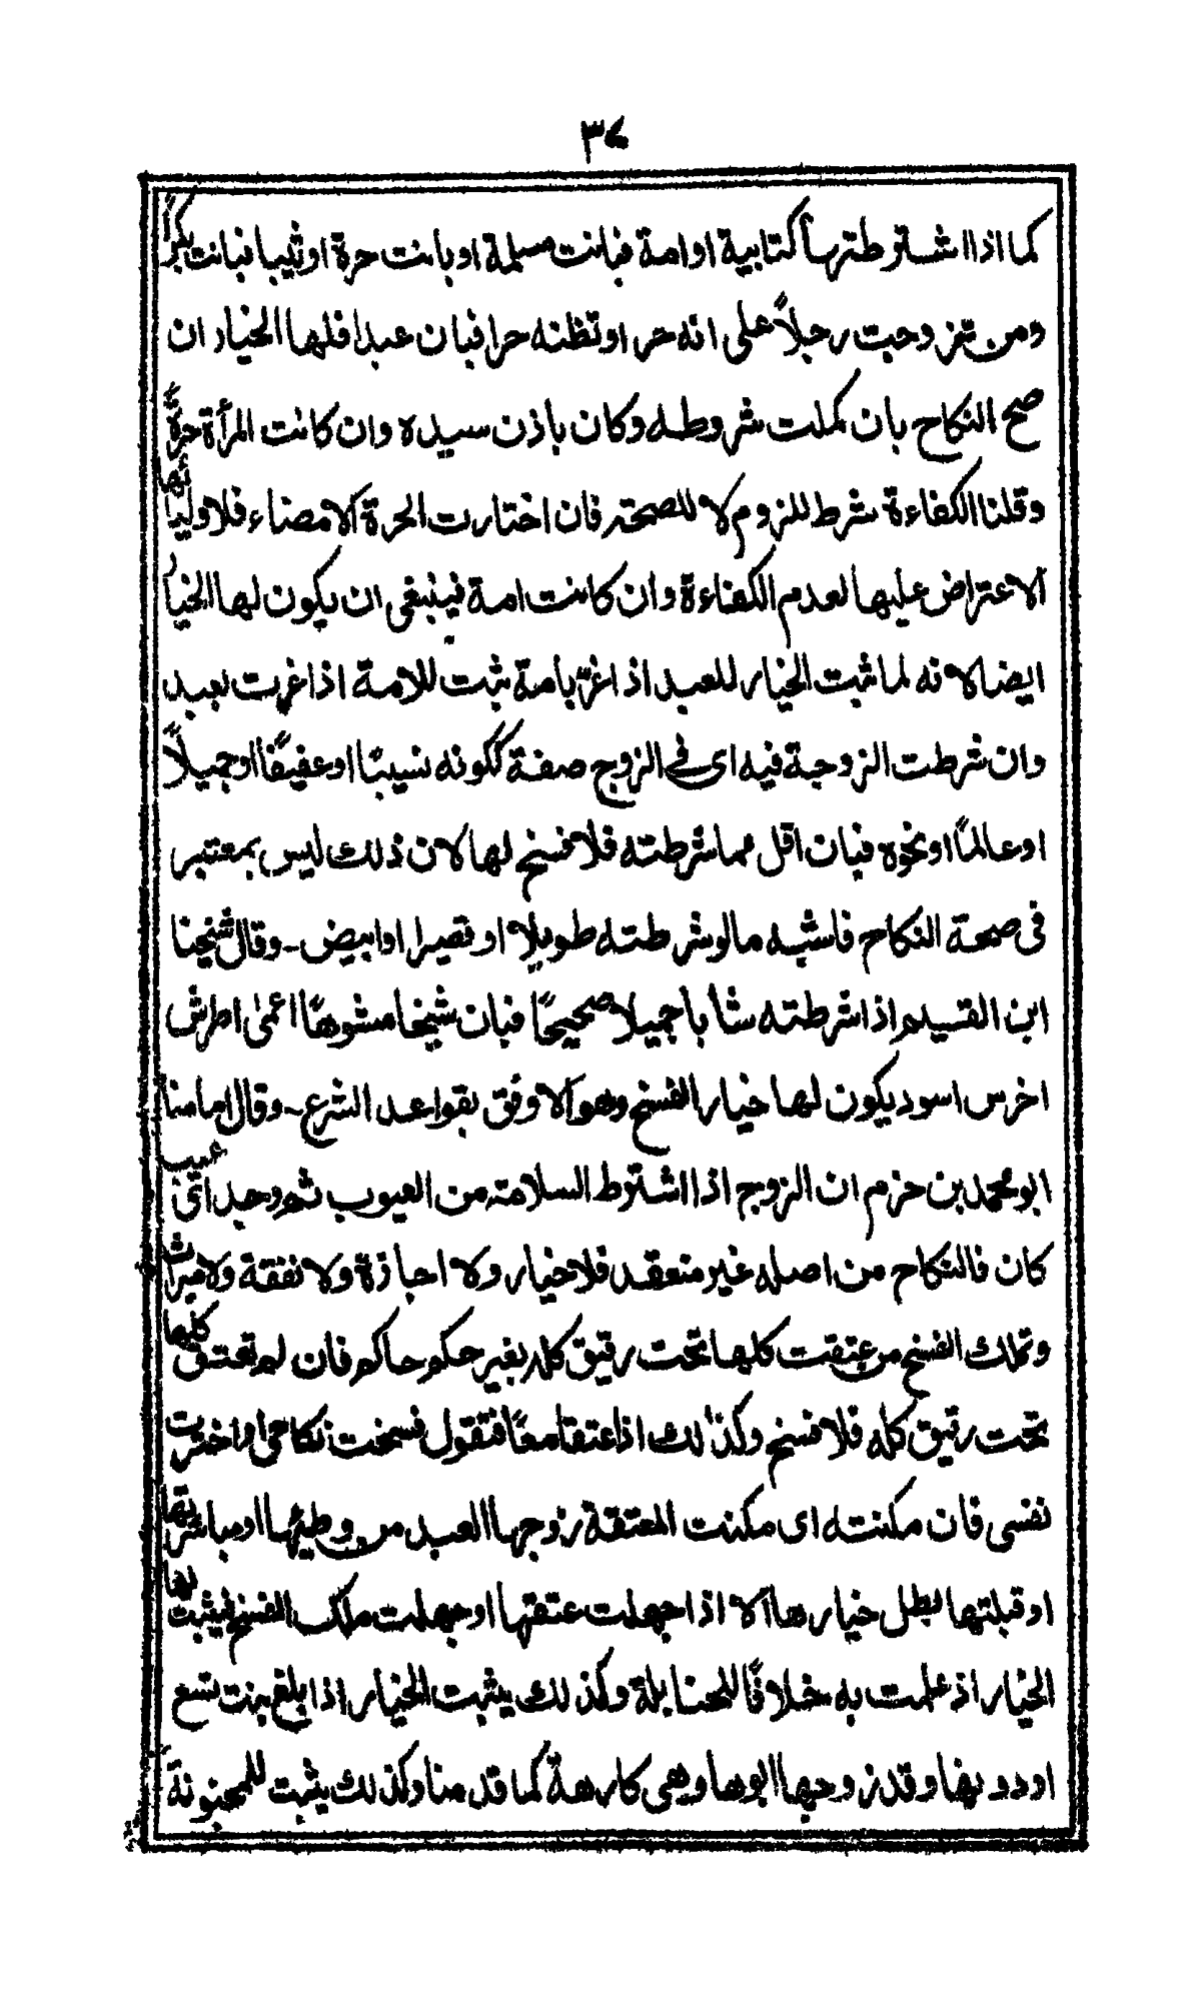 ٣٧
كما اذا اشترطتها كتابية او امة فبانت مسلمة او بانت حرة او ثيبا فبانت بكرًا
ومن تزوجت رجلاً على انه حر او تظنه حرا فبان عبدا فلها الخيار ان
صح النكاح بان كملت شروطه وكان باذن سيده وان كانت المرأة حرةً
وقلنا الكفاءة شرط للزوم لا للصحة فان اختارت الحرة الامضاء فلاوليائها
الاعتراض عليها لعدم الكفاءة وان كانت امة فينبغى ان يكون لها الخيار
ايضا لانه لما ثبت الخيار للعبد اذا غرّ بامة ثبت للامة اذا غرت بعبد
وان شرطت الزوجة فيه اى فى الزوج صفة ككونه نسيبًا او عفيفًا او جميلاً
او عالمًا او نحوه فبان اقل مما شرطته فلا فسخ لها لان ذلك ليس بمعتبر
فى صحة النكاح فاشبه ما لو شرطته طويلا او قصيرا او ابيض ۔ وقال شيخنا
ابن القسيم اذا شرطته شابا جميلا صحيحًا فبان شيخا مشوهًا اعمىٰ اطرش
اخرس اسود يكون لها خيار الفسخ وهو الاوفق بقواعد الشرع ۔ وقال امامنا
ابو محمد بن حزم ان الزوج اذا اشترط السلامة من العيوب ثم وجد اىّ عيب
كان فالنكاح من اصله غير منعقد فلا خيار ولا اجازة ولا نفقة ولا ميراث
وتملك الفسخ من عتقت كلها تحت رقيق كله بغير حكم حاكم فان لم تعتق كلها
تحت رقيق كله فلا فسخ وكذلك اذا عتقا معًا فتقول فسخت نكاحى او اخترت
نفسى فان مكنته اى مكنت المعتقة زوجها العبد من وطيئها او مباشرتها
او قبلتها بطل خيارها الا اذا جهلت عتقها او جهلت ملك الفسخ فيثبت لها
الخيار اذ علمت به خلافًا للحنابلة وكذلك يثبت الخيار اذا بلغ بنت تسع
او دونها وقد زوجها ابوها وهى كارهة كما قدمنا وكذلك يثبت للمجنونة